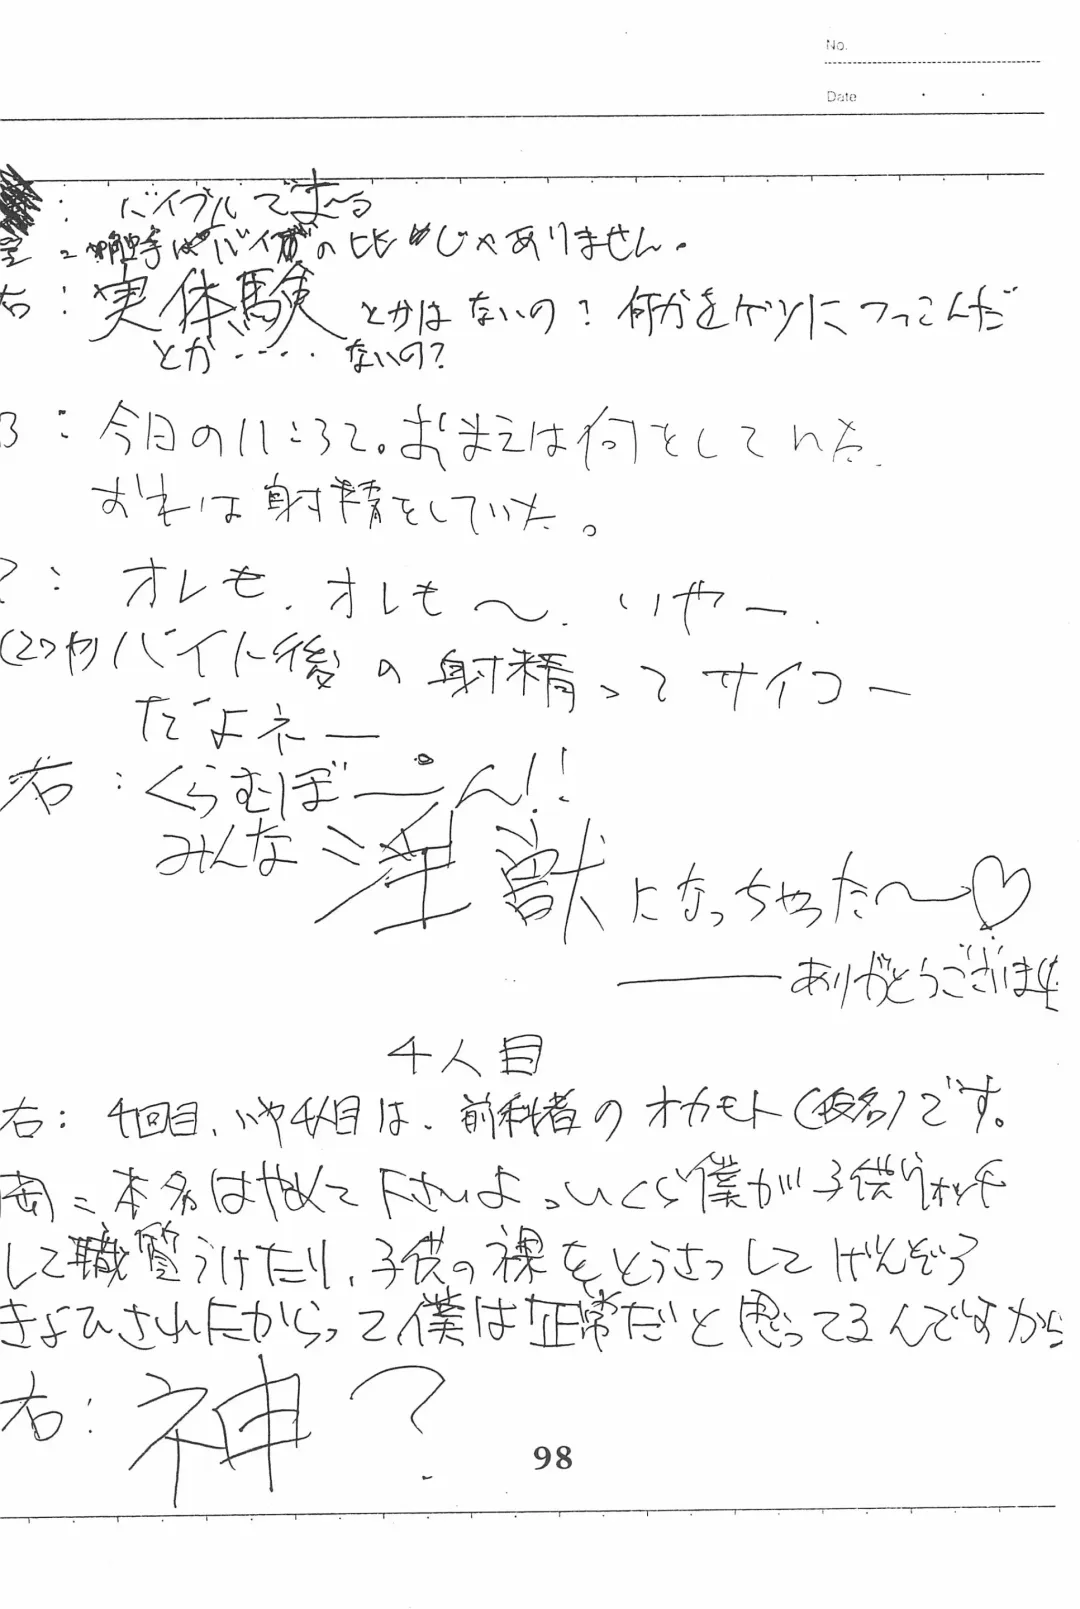 No.
Date
: バイブルでま〜る
触手はバイブの比じゃありません。
右: 実体験とかはないの? 何かをケツにつっこんだ
とか・・・・ないの?
: 今日の11ころて。おまえは何をしていた
おれは射精をしていた。
?: オレも、オレも〜、いやー、
バイト後の射精ってサイコー
だよネー
右: くらむぼーん!!
みんな淫獣になっちゃった〜♡
ありがとうございま
4人目
右: 4回目、いや4人目は、前科者のオカモト(仮名)です。
岡: 本名はやめて下さいよっいくら僕が子供ウォッチ
して職質うけたり、子供の裸をとうさつしてげんぞう
きょひされたからって僕は正常だと思ってるんですから
右: 神?
98